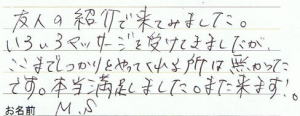 友人の紹介で来てみました。
いろいろマッサージを受けてきましたが、
ここまでしっかりとやってくれる所は無かった
です。本当満足しました。また来ます!。
お名前 M.S